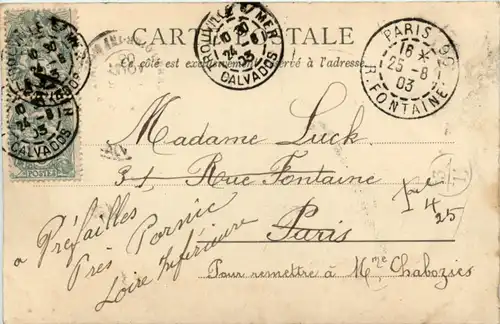 CARTE POSTALE
Ce côté est exclusivement réservé à l'adresse
TROUVILLE S/ MER
10 20
24 -8
03
CALVADOS
PARIS 92
16 *
25 -8
03
R. FONTAINE
CALVADOS
CALVADOS
POSTES
Madame Luck
31 Rue Fontaine
Paris
Pour remettre à Mme Chabozies
à Préfailles
Près Pornic
Loire Inférieure
4
25